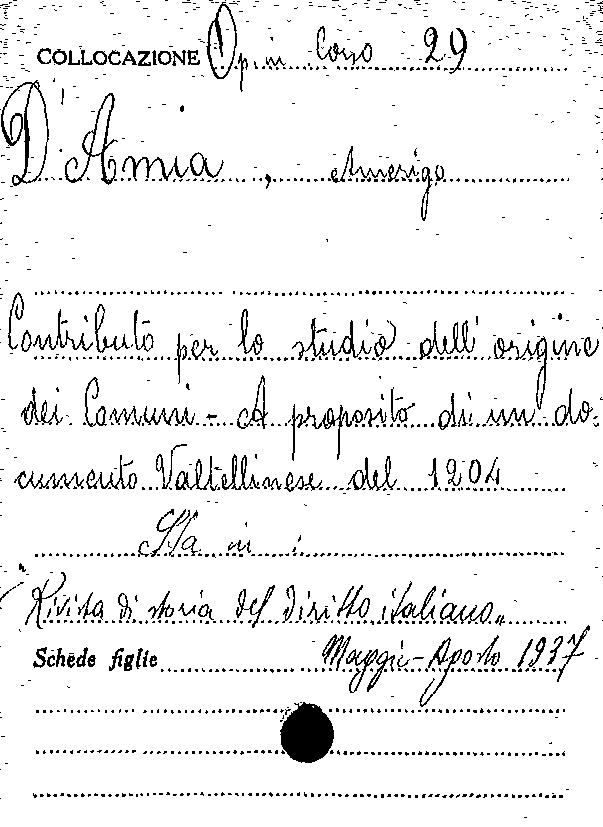 COLLOCAZIONE Op. in Corso 29
D'Amia, Amerigo
Contributo per lo studio dell'origine
dei Comuni - A proposito di un do-
cumento Valtellinese del 1204
Sta in :
"Rivista di storia del diritto italiano"
Schede figlie Maggio-Agosto 1937